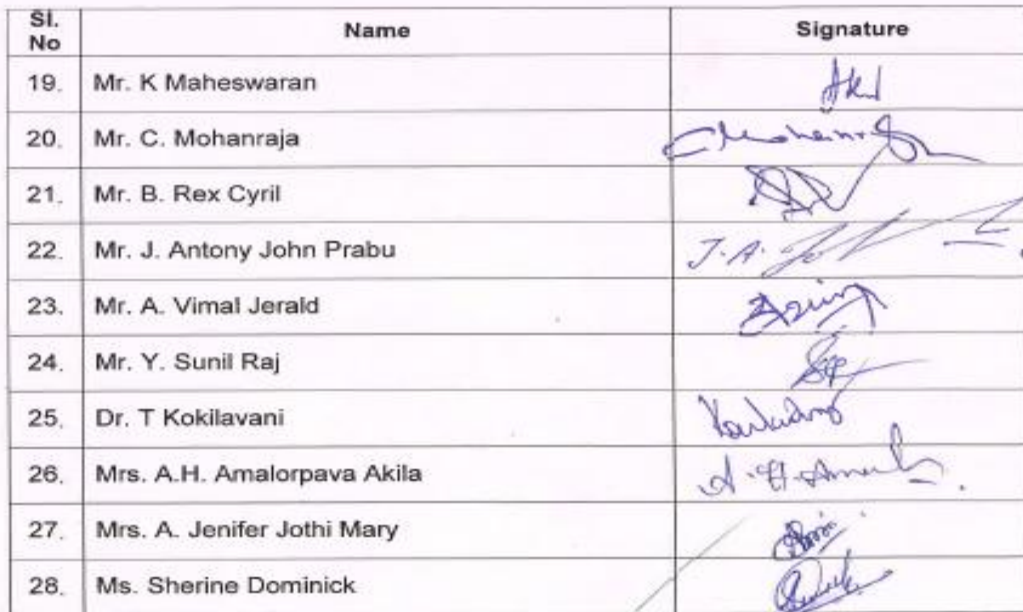 Sl. No Name Signature
19. Mr. K Maheswaran
20. Mr. C. Mohanraja
21. Mr. B. Rex Cyril
22. Mr. J. Antony John Prabu J.A.
23. Mr. A. Vimal Jerald
24. Mr. Y. Sunil Raj
25. Dr. T Kokilavani
26. Mrs. A.H. Amalorpava Akila
27. Mrs. A. Jenifer Jothi Mary
28. Ms. Sherine Dominick